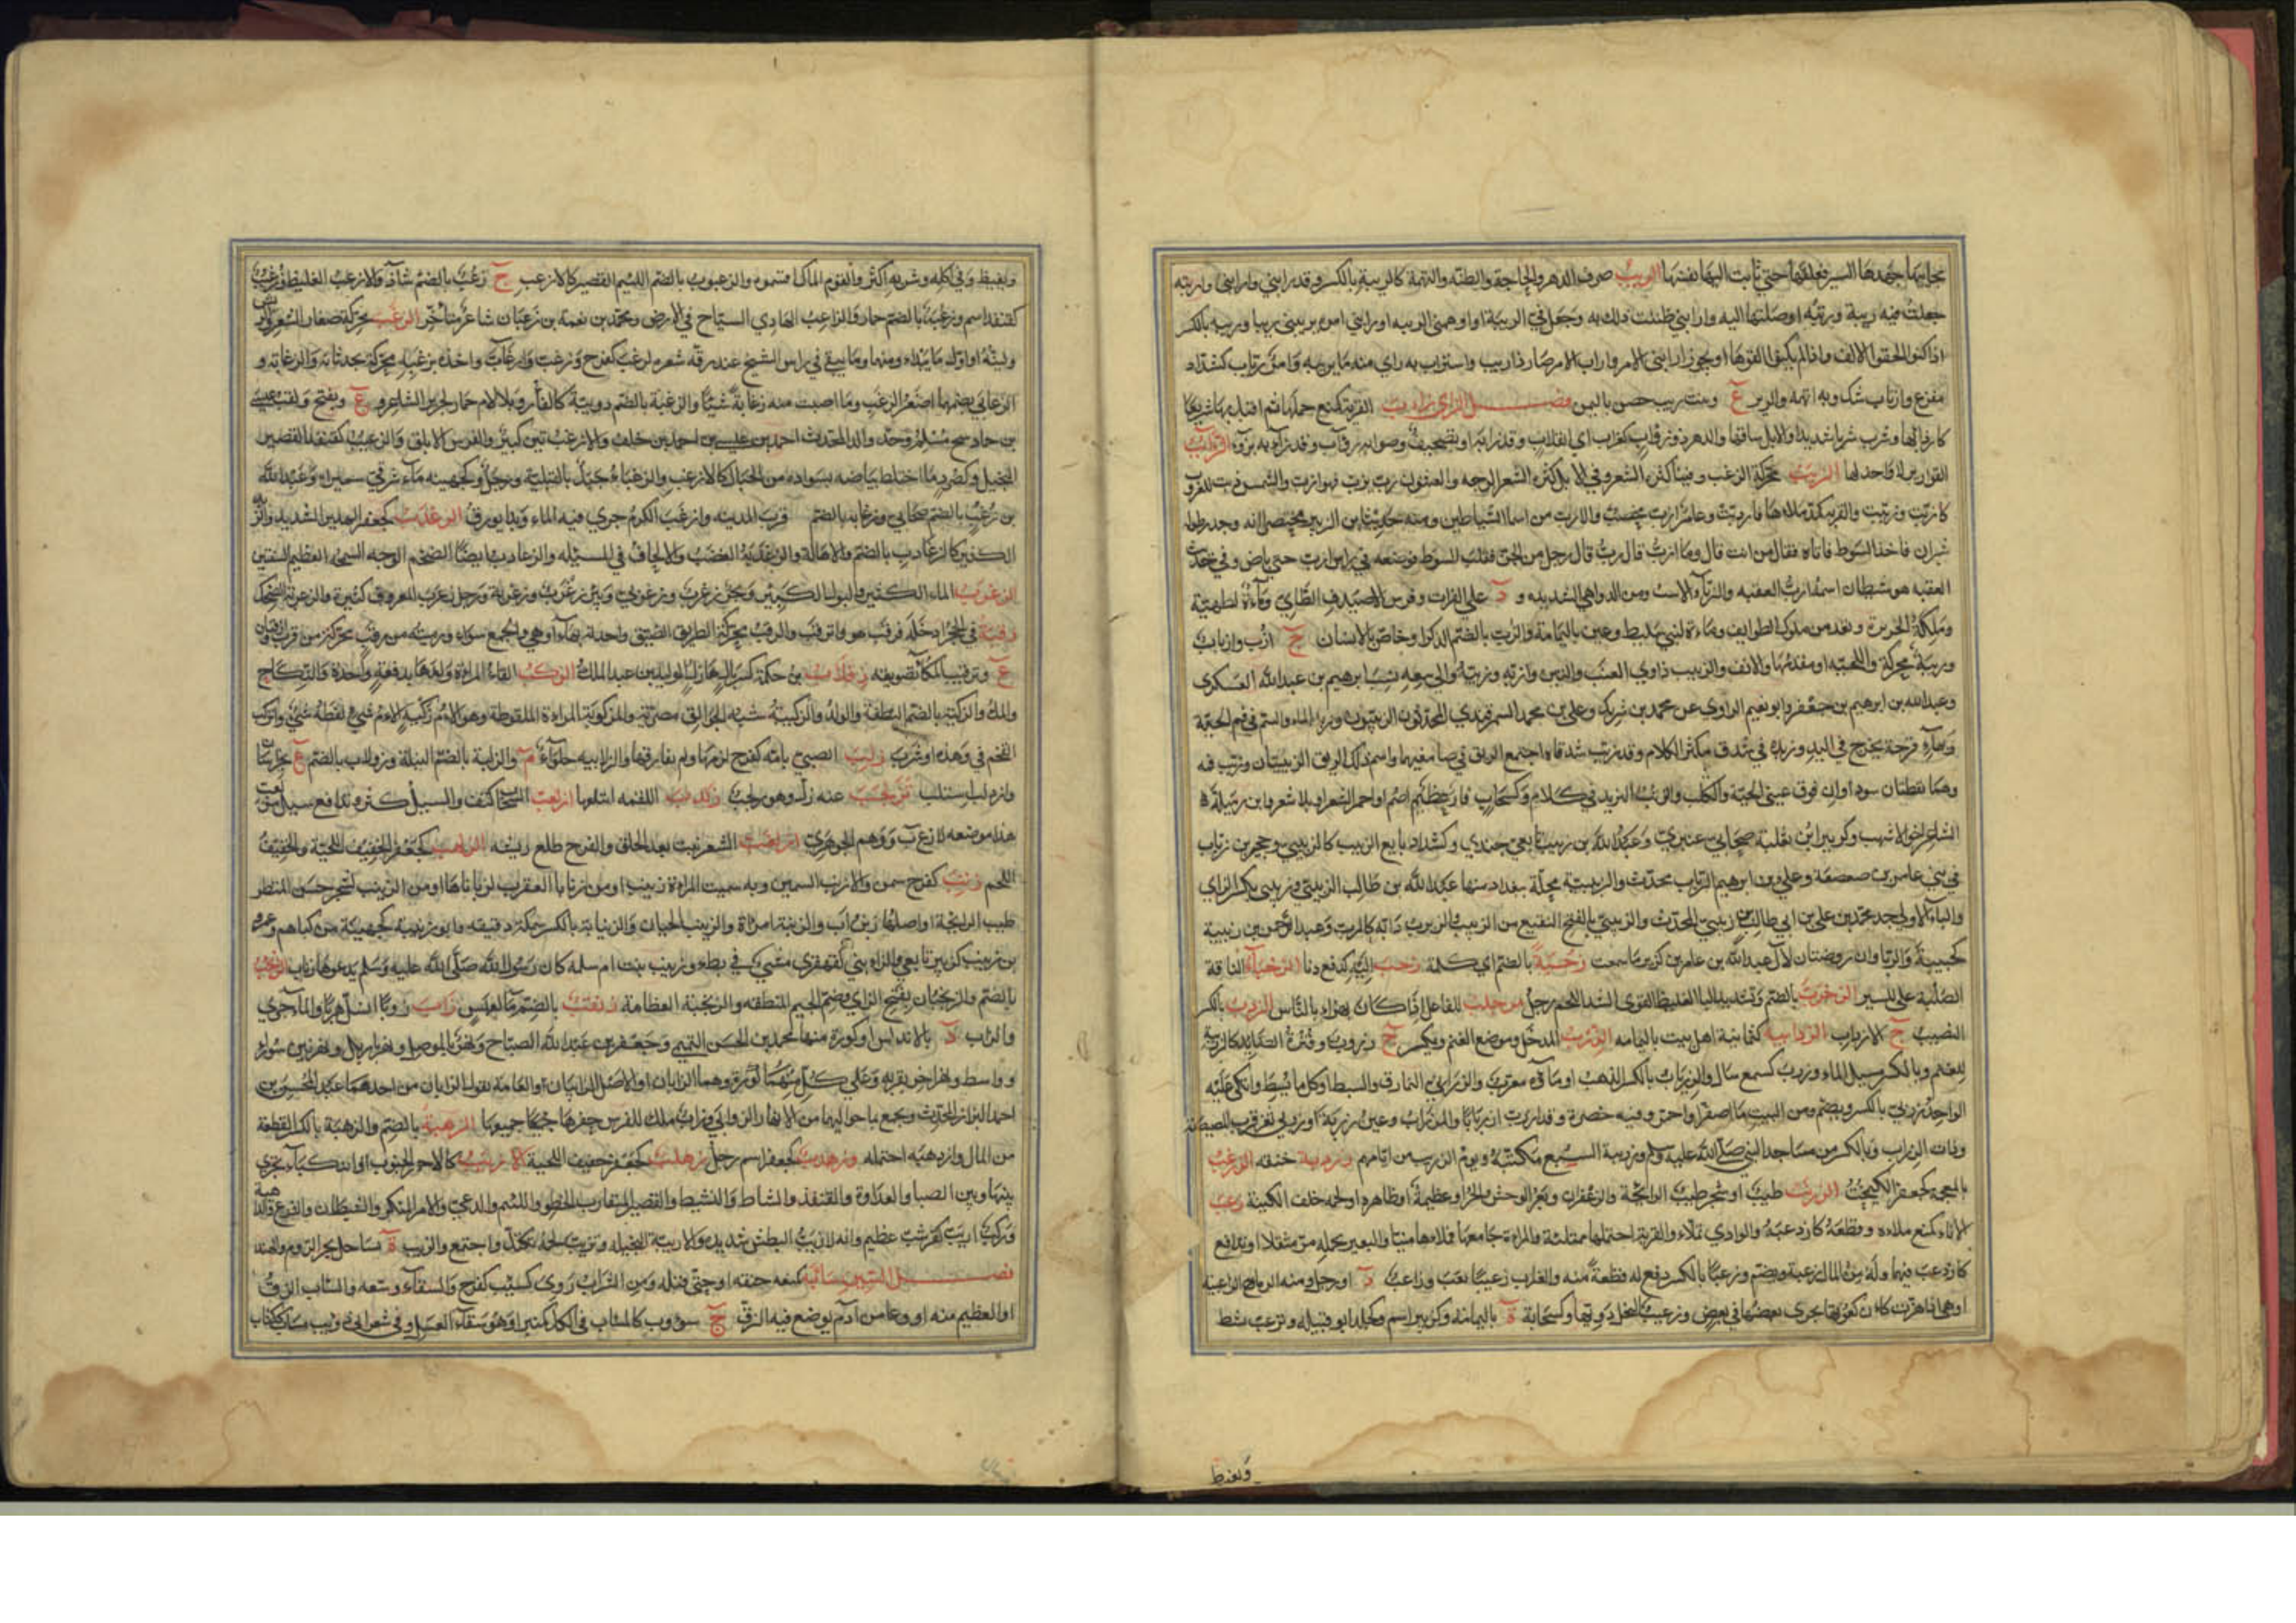 بجانبها جهدها السير فعلفها حتى ثابت اليها نفسها الريب صرف الدهر والحاجة والظنة والتهمة كالريبة بالكسر وقد رابني وارابني واربته
جعلت فيه ريبة وربته اوصلتها اليه وارابني ظننت ذلك به وجعل في الريبة او اوهمني الريبة او رابني امره يريبني ريبا وريبة بالكسر
اذا كنوا الحقوا الالف واذا لم يكنوا القوها او يجوز ارابني الامر واراب الامر صار ذا ريب واستراب به راى منه ما يريبه وامر رياب كشداد
مفزع وارتاب شك وبه اتهمه والريب ع وبيت ريب حصن باليمن فصل الزاى زاب القربة كمنع حملها ثم اقبل بها سريعا
كازدابها وشرب شربا شديدا والابل ساقها والدهر ذو زؤاب كغراب اى انقلاب وقد زاب به
القوارير لا واحد لها الزبب محركة الزغب وفينا كثرة الشعر وفي الابل كثرة الشعر الوجه والعثنون زب يزب فهو ازب والشمس دنت للغروب
كازبت وزببت والقربة كمد ملاها فازدبت وعام ازب مخصب والازب من اسما الشياطين ومنه حديث ابن الزبير مختصرا انه وجد رجلا طوله
شبران فاخذ السوط فاتاه فقال من انت قال ازب قال وما ازب قال رجل من الجن فقلب السوط فوضعه في راس ازب حتى باص وفي حديث
العقبة هو شيطان اسمه ازب العقبه والزباء الاست ومن الدواهي الشديدة و د على الفرات وفرس الاصيدف الطائي وماءة لطهية
وملكة الجزيرة وتعد من ملوك الطوايف وماءة لبني سليط وعين باليمامة والزب بالضم الذكر او خاص بالانسان ج ازب وازباب
وزببة محركة واللحية او مقدمها والانف والزبيب ذاوي العنب والتين وازبه وزببه والى بيعه نسب ابرهيم بن عبدالله العسكري
وعبدالله بن ابرهيم بن جعفر وابو نعيم الراوي عن محمد بن شريك وعلي بن محمد السمرقندي المحدثون الزبيبيون وزبد الماء والسم في فم الحية
وبهاء قرحة تخرج في اليد وزبدة في شدق مكثر الكلام وقد زبب شدقاه اجتمع الريق في صامغيهما واسم ذلك الريق الزبيبتان وزبب فمه
وهما نقطتان سوداوان فوق عيني الحية والكلب والتزبب التزيد في الكلام وكسحاب فار عظيم اصم او احمر الشعر او بلا شعر وابن رميلة
الشاعر اخو الاشهب وكزبير ابن ثعلبة صحابي عنبري وعبدالله بن زبيب تابعي جندي وكشداد بايع الزبيب كالزبيبي وحجير بن زباب
في بني عامر بن صعصعة وعلي بن ابرهيم الزباب محدث والزبيبية محلة ببغداد منها عبدالله بن طالب الزبيبي وزبيبى بكسر الزاى
والباء الاولى جد محمد بن علي بن ابي طالب بن زبيبى المحدث والزبيبي بالفتح النقيع من الزبيب والزبزب دابة كالسنور وعبد الرحمن بن زبيبة
كجهينة والزباوان روضتان لآل عبدالله بن عامر بن كريز ما سمعت زجبة بالضم اى كلمة زحب اليه كدفع دنا الزخباء الناقة
الصلبة على السير الزخزب بالضم وتشديد البا الغليظ القوى الشديد اللحم رجل مزخلب للفاعل اذا كان يهزا بالناس الزدب بالكسر
النصيب ج الازداب الزدابية كثمانية اهل بيت باليمامة الزرب المدخل وموضع الغنم ويكسر ج وزروب وقترة الصائد كالزريبة
للغنم وبالكسر مسيل الماء وزرب كسمع سال والزرياب بالكسر الذهب او ماؤه معرب والزرابي النمارق والبسط او كل ما بسط واتكئ عليه
الواحد زربي بالكسر ويضم ومن النبت ما اصفر او احمر وفيه خضرة وقد ازرب ازربابا والمزراب
وذات الزراب وبالكسر من مساجد النبي صلى الله عليه وسلم وزريبة السبع مكتنه ويوم الزريب من ايامهم وزردبه خنقه الزرغب
بالمعجمة كجعفر الكيمخت الزرنب طيب او شجر طيب الرائحة والزعفران وبعر الوحش والحر او عظيمه او ظاهره او لحمة خلف الكينة زعب
الاناء كمنع ملاه وقطعه كازدعبه والوادي تملاء والقربة احتملها ممتلئة والمراة جامعها فملاها منيا والبعير بحمله مر مثقلا او تدافع
كازدعب فيهما وله من المال زعبة ويضم وزعبا بالكسر دفع له قطعة منه والغراب زعيبا نعب وزاعب د او رجل ومنه الرماح الزاعبية
او هي اذا هزت كان كعوبها يجرى بعضها في بعض وزعيب النخل دويها وكسحابة ة باليمامة وكزبير اسم وتزعب نشط
وتغيظ
وتغيظ وفي اكله وشربه اكثر والقوم المال اقتسموه والزعبوب بالضم اللئيم القصير كالازعب ج زعب بالضم شاذ والازعب الغليظ وزعيب
كقنفذ اسم وزعبة بالضم حمار والزاعب الهادي السياح في الارض ومحمد بن نعمة بن زعبان شاعر متاخر الزغب محركة صغار الشعر والريش
ولينه او اول ما يبدو منهما وما يبقى في راس الشيخ عند رقة شعره زغب كفرح وزغب وازغاب واخذه بزغبه محركة بحدثانه والزغابة و
الزغابى بضمهما اصغر الزغب وما اصبت منه زغابة شيئا والزغبة بالضم دويبة كالفار وبلا لام حمار لجرير الشاعر و ع ويفتح ولقب عيسى
بن حماد شيخ مسلم وجد والد المحدث احمد بن عيسى بن احمد بن خلف والازغب تين كبير والفرس الابلق والزغبب كقنفذ القصير
البخيل وكصرد ما اختلط بياضه بسواده من الحبال كالازغب والزغباء جبل بالقبلية ورجل وكجهينة ماء شرقي سميراء وعبدالله
بن زغب بالضم صحابي وزغابة بالضم قرب المدينة وازغب الكرم جرى فيه الماء وبدا يورق الزغدب كجعفر الهدير الشديد والزبد
الكثير كالزغادب بالضم والاهالة والزغدبة الغضب والالحاف في المسئله والزغادب ايضا الضخم الوجه السمجه العظيم الشفتين
الزغرب الماء الكثير والبول الكثير وبحر زغرب وزغربي وبئر زغرب وزغربة ورجل زغرب المعروف كثيره والزغربة الضحك
زقبه في الجحر ادخله فزقب هو وانزقب والزقب محركة الطريق الضيق واحدته بهاء او هي والجمع سواء ورميته من زقب محركة من قرب
ع وتزقيب المكاء تصويته زقلاب بن حكمة كسربال هازل الوليد بن عبد الملك الزكب القاء المراة ولدها بدفعة واحدة والنكاح
والملء والزكبة بالضم النطفة والولد والزكيبة شبه الجوالق مصرية والمزكوبة المراة الملقوطة وهو الام زكبة الام شيء لفظه شيء وانزكب
اقتحم في وهدة او سرب زلب الصبي بامه كفرح لزمها ولم يفارقها والزلابية حلواء م والزلبة بالضم النبلة وزولاب بالضم ع بخراسان
وازدلب استلب تزلحب عنه زل وهو زلحب زلدب اللقمه ابتلعها ازلعب السحاب كثف والسيل كثر وتدافع سيل مزلعب
هذا موضعه لا زعب ووهم الجوهري ازلغب الشعر نبت بعد الحلق والفرخ طلع ريشه الزلهب كجعفر الخفيف اللحية والخفيف
اللحم زنب كفرح سمن والازنب السمين وبه سميت المراة زينب او من زنابا العقرب لزباناها او من الزينب لشجر حسن المنظر
طيب الرايحة او اصلها زين اب والزنبة امراة والزينب الجبان والزنابة بالكسر سمكة دقيقه وابو زنيبة كجهينة من كناهم وعمرو
بن زنيب كزبير تابعي والزانبى كالقهقرى مشى في بطء وزينب بنت ام سلمة كان رسول الله صلى الله عليه وسلم يدعوها زناب الزنجب
بالضم والزنجبان بفتح الزاى وضم الجيم المنطقة والزنجبة العظامة زنقب بالضم ماء لعبس زاب زوبا انسل هربا والماء جرى
والزاب د بالاندلس او كورة منها محمد بن الحسن التميمي وجعفر بن عبدالله الصباح ونهر بالموصل ونهر باربل ونهر بين سوراء
وواسط ونهر اخر بقربه وعلى كل منهما كورة وهما الزابان او الاصل الزابيان او العامة تقول الزابان من احدهما عبد المحسن بن
احمد البزاز المحدث ويجمع بما حواليهما من الانهار الزوابي وزاب ملك للفرس حفرها جميعها الزهبة بالضم والزهبة بالكسر القطعة
من المال وازدهبه احتمله وزهدب كجعفر اسم رجل زهلب كجعفر خفيف اللحية الازيب كالاحمر الجنوب او النكباء تجري
بينها وبين الصبا والعداوة والقنفذ والنشاط والنشيط والقصير المتقارب الخطو واللئيم والدعي والامر المنكر والشيطان والفزع والداهية
وتركب ازيب كقرشب عظيم وانه لازيب البطش شديده والازيبة البخيلة وتزيب لحمه تكتل واجتمع والزيب ة بساحل بحر الروم والعند
فصل السين سأبه كمنعه خنقه او حتى قتله ومن الشراب روى كسئب كفرح والسقاء وسعه والسأب الزق
او العظيم منه او وعاء من ادم يوضع فيه الزق ج سؤوب كالمسأب في الكل كمنبر او هو سقاء العسل وفي شعر ابي ذؤيب مساب ككتاب